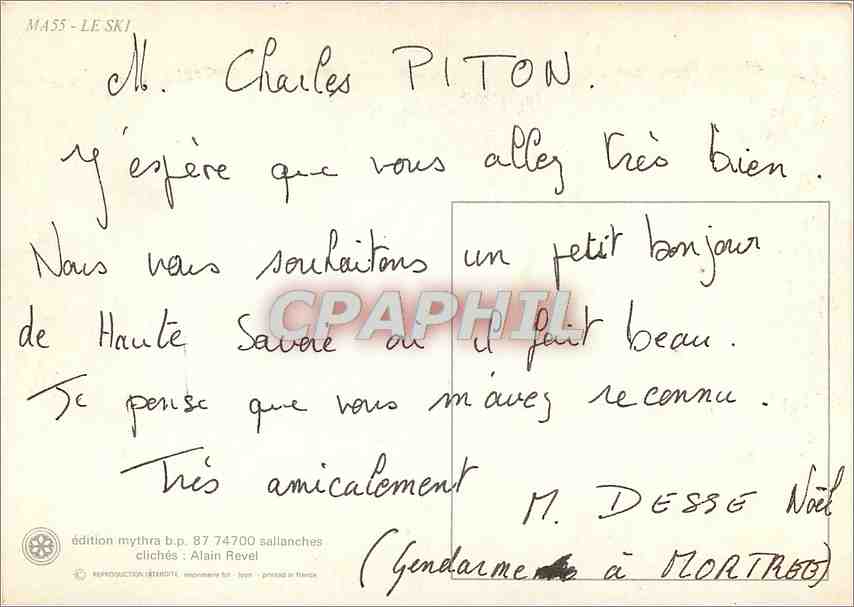 MA55 - LE SKI
M. Charles PITON.
J'espère que vous allez très bien.
Nous vous souhaitons un petit bonjour
de Haute Savoie où il fait beau.
CPAPHIL
Je pense que vous m'avez reconnu.
Très amicalement
M. DESSE Noël
(Gendarme à MORTREE)
édition mythra b.p. 87 74700 sallanches
clichés : Alain Revel
© REPRODUCTION INTERDITE imprimerie fot - lyon - printed in france